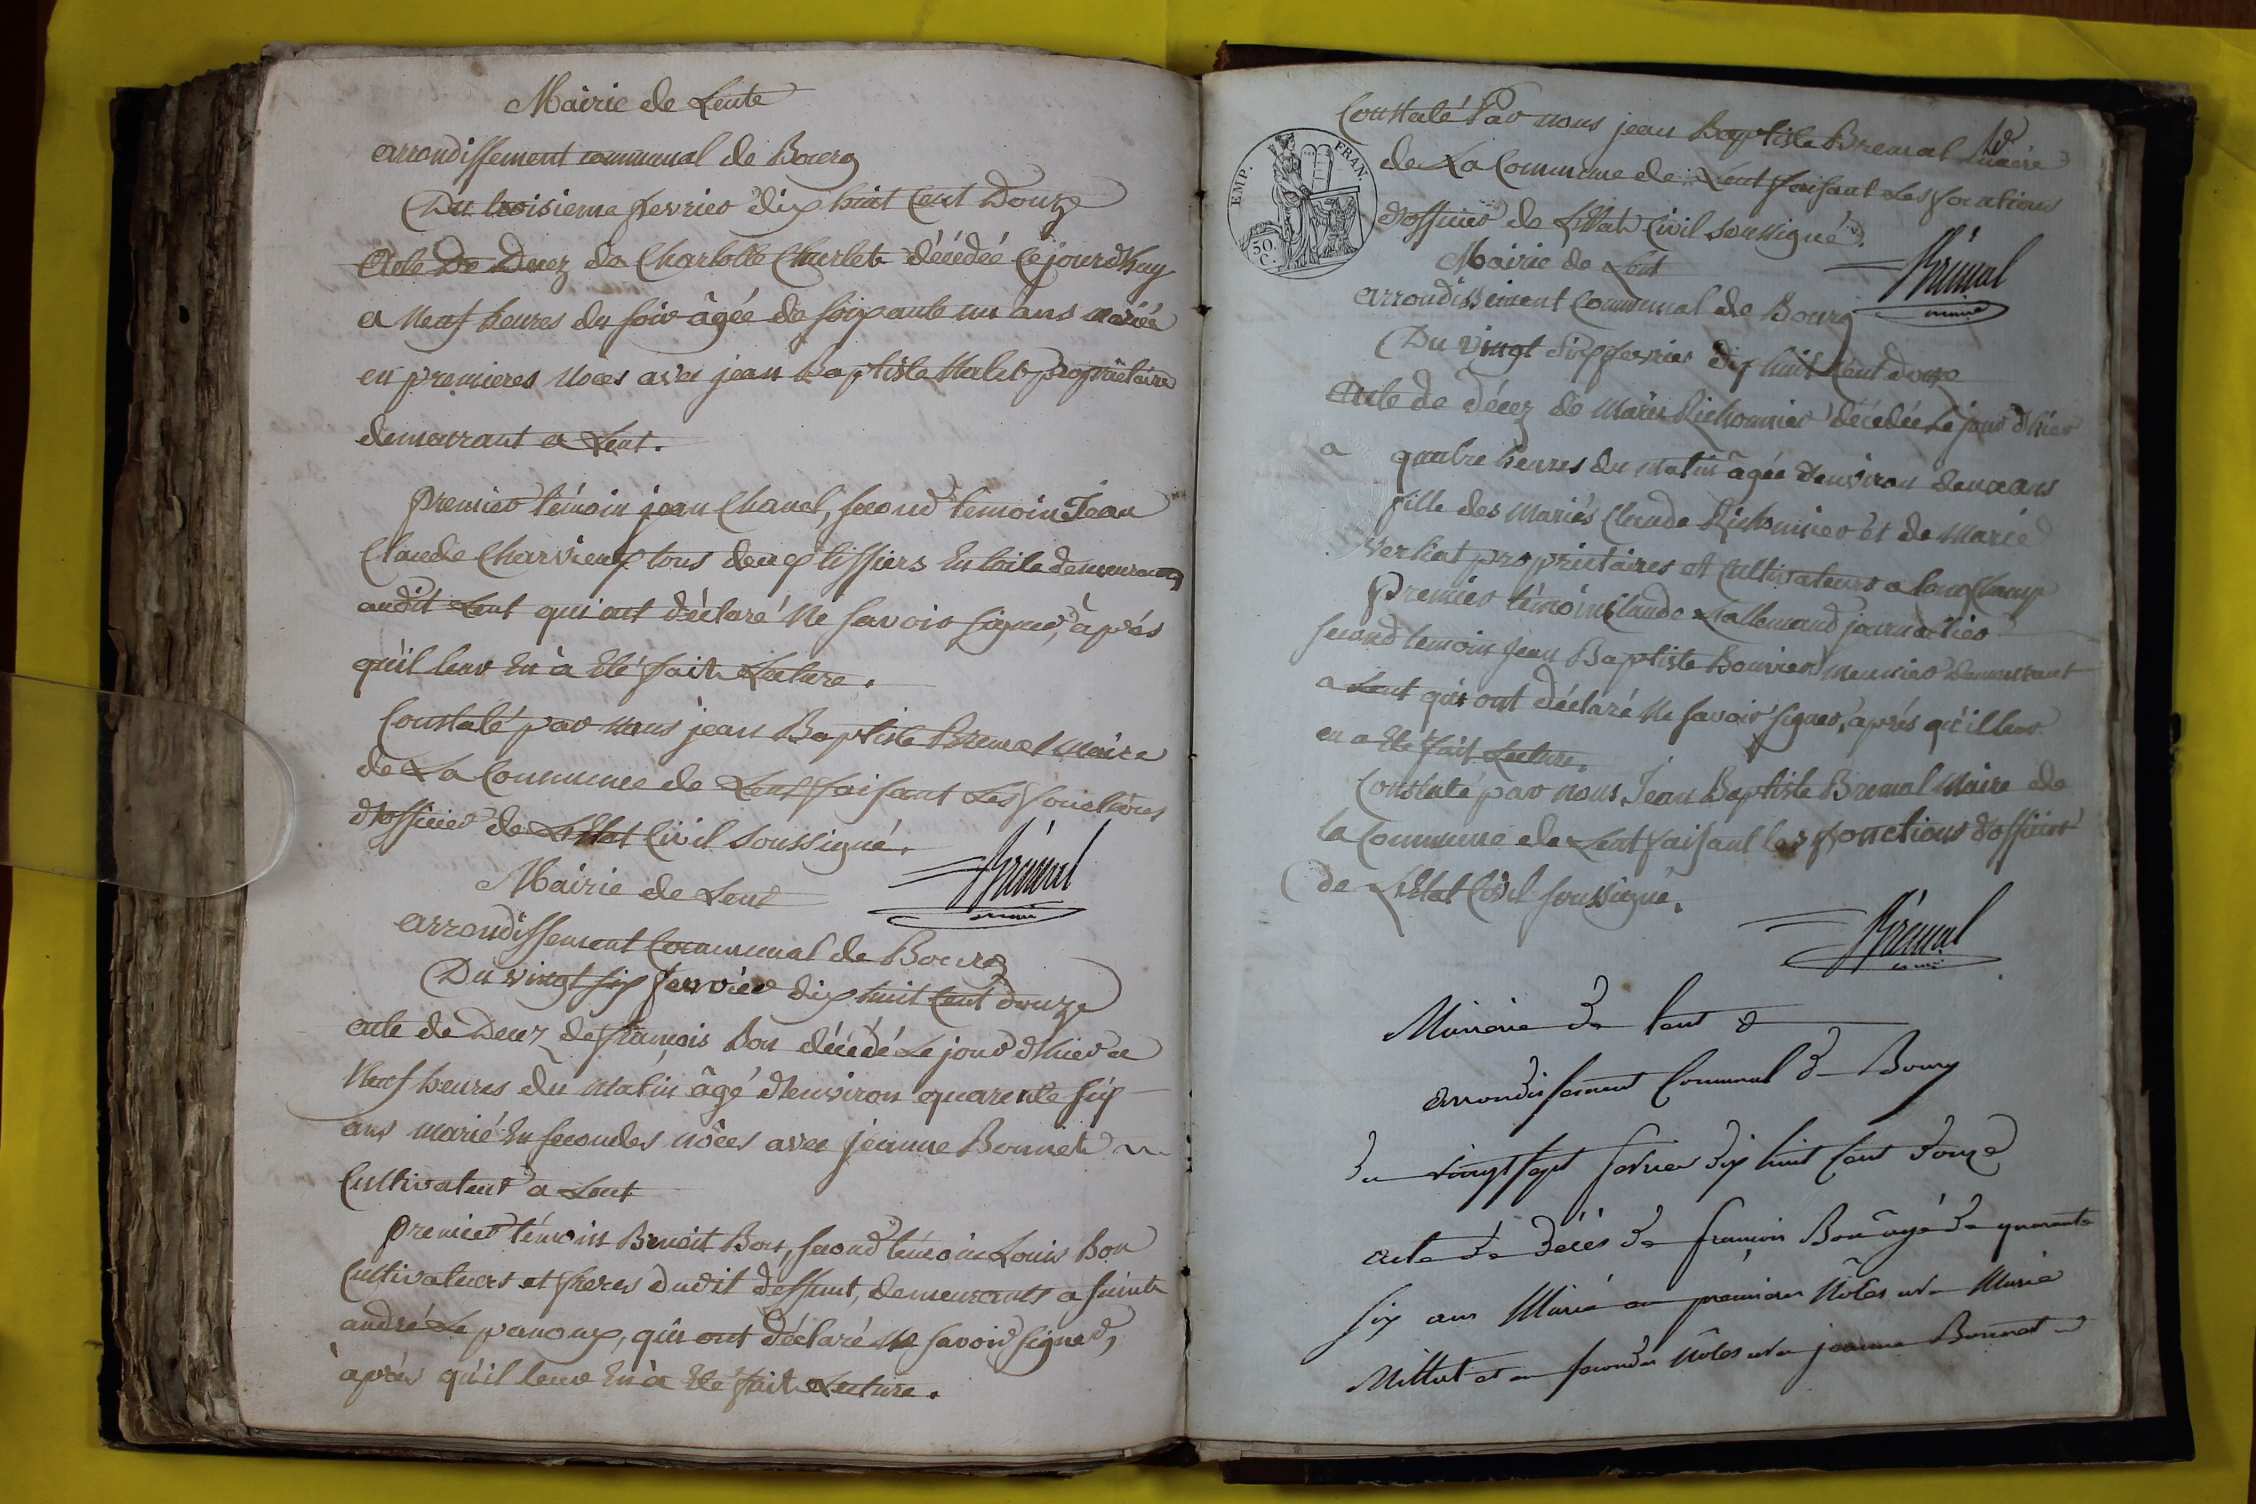 Mairie de Lente
arrondissement communal de Bourg
Du troisieme fevrier dix huit Cent Douze
Acte De Decez de Charlotte Charlet décédée Cejourdhuy
a Neuf heures du soir âgée de soixante un ans mariée
en premieres Noces avec jean Baptiste Merlet propriétaire
demeurant a Lent.
Premier témoin jean Chanel, second temoin Jean
Claude Charvieux tous deux tissiers En toile demeurants
audit Lent qui ont déclaré Ne savoir signer, après
qu'il leur En à Eté fait Lecture.
Constaté par nous jean Baptiste Brémal Maire
de La Commune de Lent faisant Les fonctions
d'officier de L'Etat Civil soussigné.
Brémal
maire
Mairie de Lent
arrondissement Communal de Bourg
Du vingt six fevrier dix huit Cent douze
acte de Decez de françois Bon décédé Le jour d'hier a
Neuf heures du matin âgé d'environ quarente six
ans marié En secondes nôces avec jeanne Bonnet
Cultivateur a Lent
Premier témoin Benoit Bon, second témoin Louis Bon
Cultivateurs et freres dudit deffunt, demeurants a Sainte
andré Le panoux, qui ont déclaré Ne savoir signer,
àprès qu'il leur En à Eté fait Lecture.
Constaté Par nous jean Baptiste Bremal Maire
de La Commune de Lent faisant Les fonctions
d'officier de L'Etat Civil soussigné.
EMP. FRAN.
50.
C.
Brémal
maire
Mairie de Lent
arrondissement Communal de Bourg
Du vingt six fevrier dix huit Cent douze
Acte de décez de Marie Richonnier décédée Le jour d'hier
a quatre heures du matin âgée d'environ deux ans
fille des mariés Claude Richonnier et de Marie
Verliat propriétaires et Cultivateurs a longChamp
Premier témoin Claude Lallemand journalier
second temoin Jean Baptiste Bouvier meunier demeurant
a Lent qui ont déclaré Ne savoir signer, après qu'il leur
en a Eté fait Lecture.
Constaté par nous, Jean Baptiste Bremal Maire de
la Commune de Lent faisant les fonctions d'officier
de L'Etat Civil soussigné.
Brémal
maire
Mairerie de Lent
arrondissement Communal de Bourg
du vingt sept fevrier dix huit Cent douze
acte de décès de françois Bon âgé de quarante
six ans Marié en premieres Nôces avec Marie
Millet et en secondes Nôces avec jeanne Bonnet